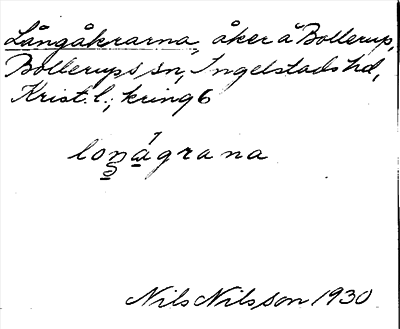 Långåkrarna, åker å Bollerup,
Bollerups sn, Ingelstads hd,
Krist. l., kring 6
lonágrana
Nils Nilsson 1930